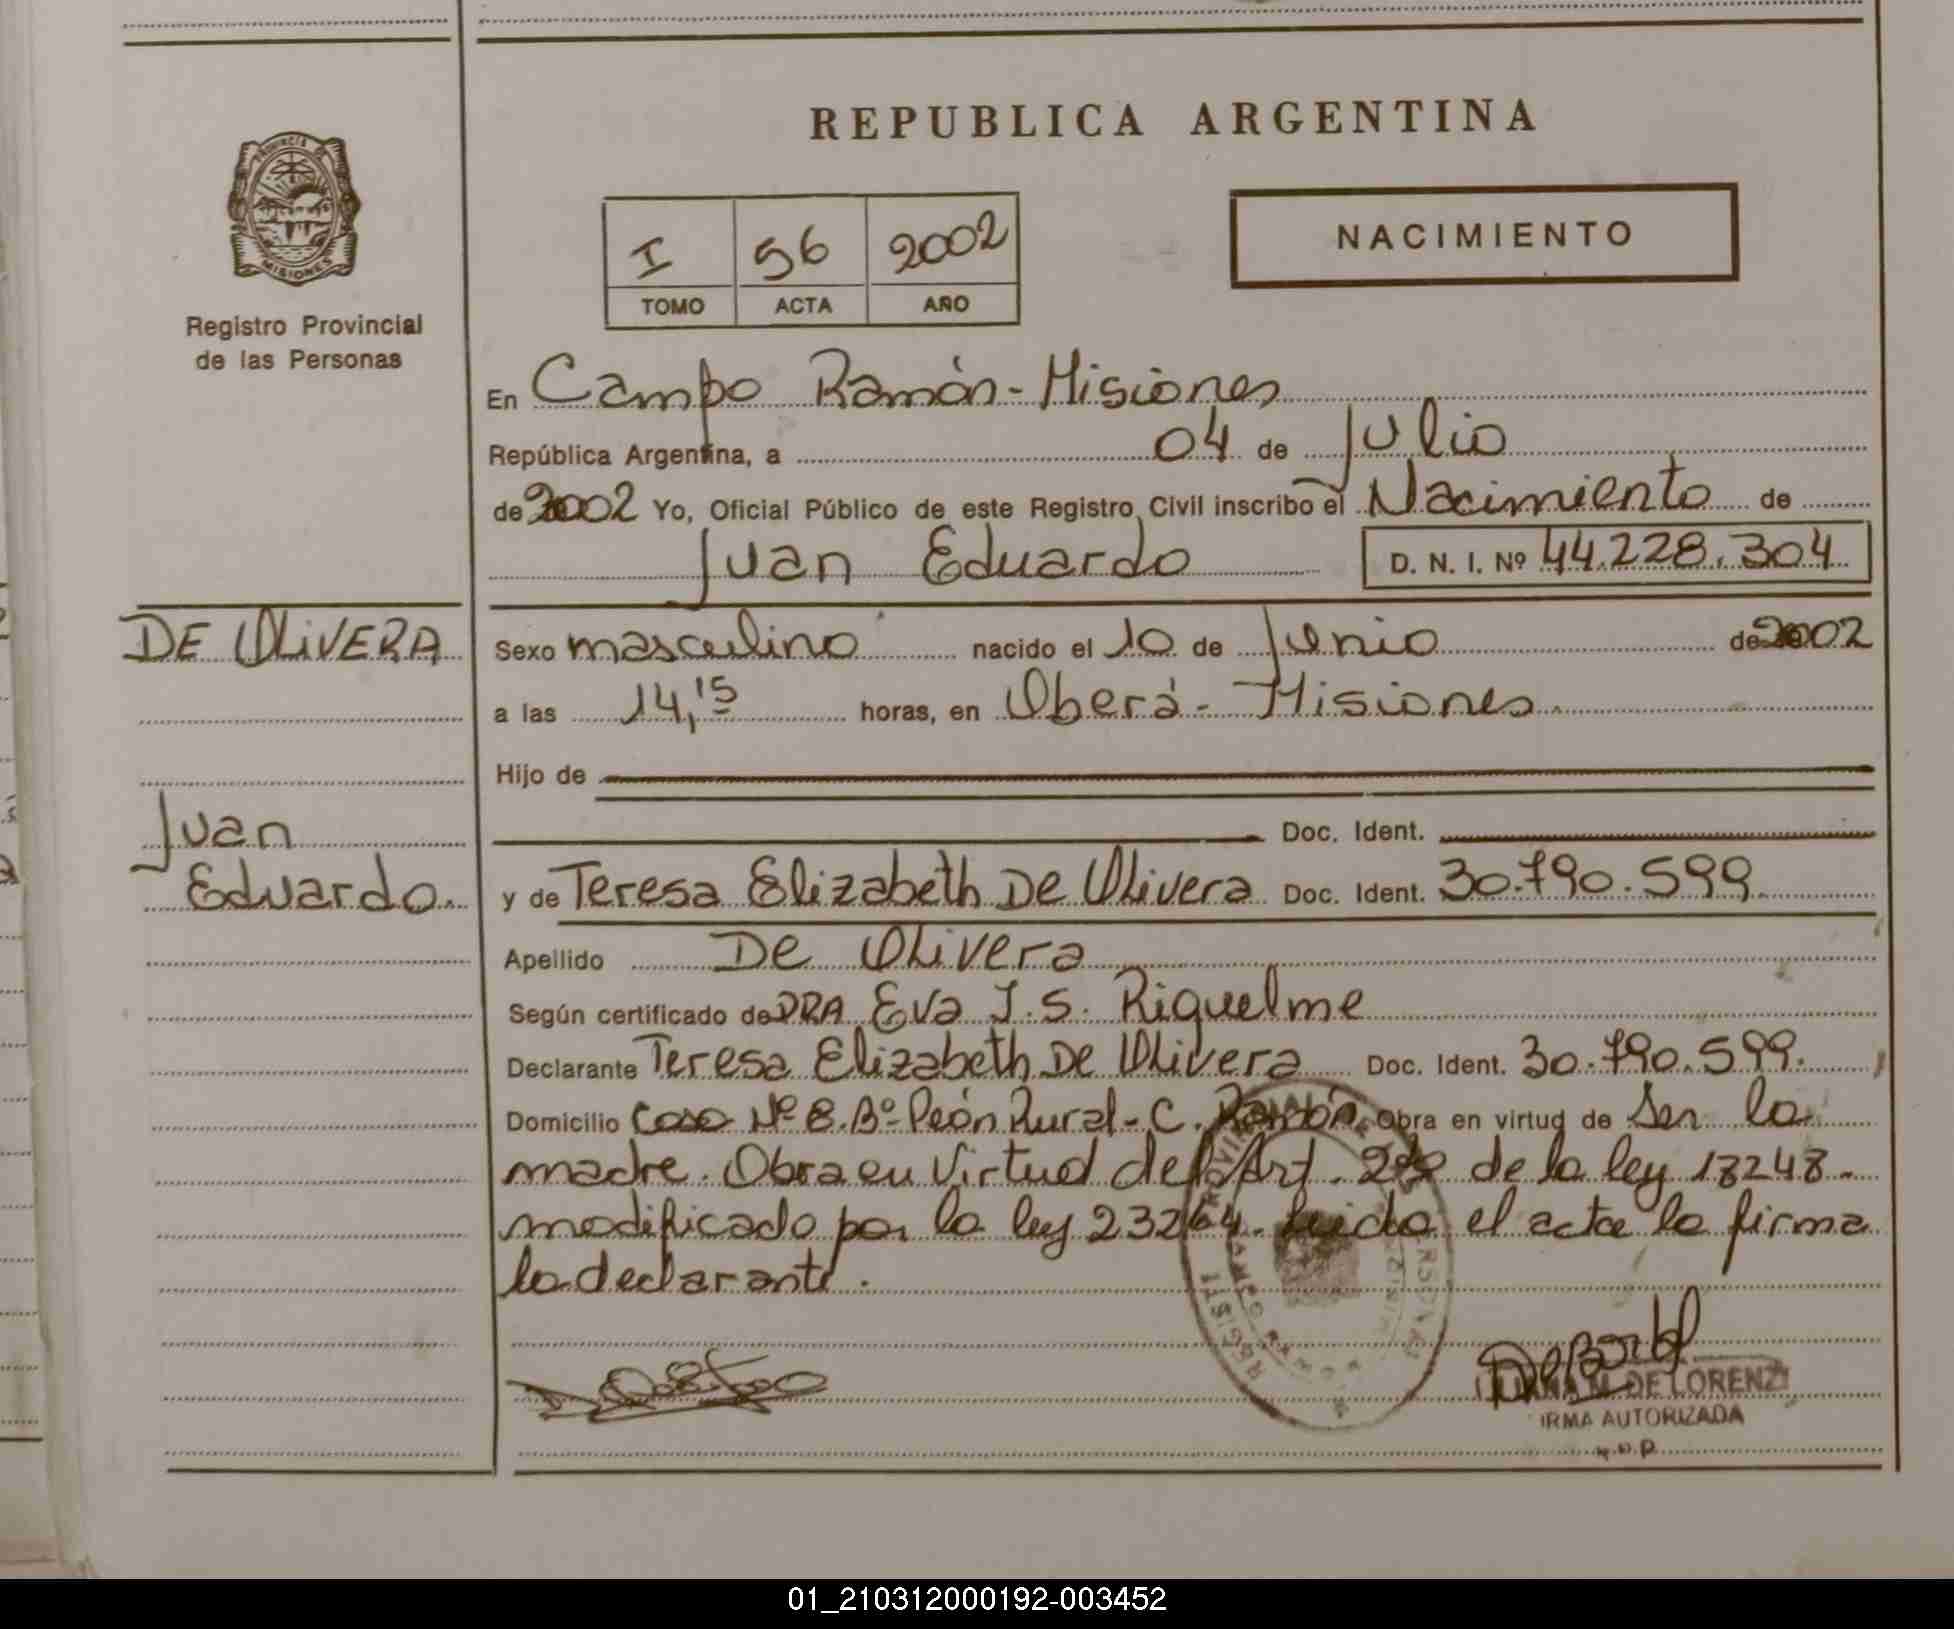 REPUBLICA ARGENTINA
PROVINCIA DE
MISIONES
Registro Provincial
de las Personas
I 56 2002
TOMO ACTA AÑO
NACIMIENTO
En Campo Ramón - Misiones
República Argentina, a 04 de Julio
de 2002 Yo, Oficial Público de este Registro Civil inscribo el Nacimiento de
Juan Eduardo D. N. I. Nº 44.228.304
DE OLIVERA
Juan
Eduardo.
Sexo masculino nacido el 10 de Junio de 2002
a las 14,15 horas, en Oberá - Misiones
Hijo de
Doc. Ident.
y de Teresa Elizabeth De Olivera Doc. Ident. 30.790.599.
Apellido De Olivera
Según certificado de DRA Eva J. S. Riquelme
Declarante Teresa Elizabeth De Olivera Doc. Ident. 30.790.599.
Domicilio Casa Nº 8. Bº Peón Rural - C. Ramón. Obra en virtud de Ser la
madre. Obra en Virtud del Art. de la ley 18248.
modificado por la ley 23264. Leido el acta la firma
la declarante.
M. DE LORENZI
FIRMA AUTORIZADA
01_210312000192-003452